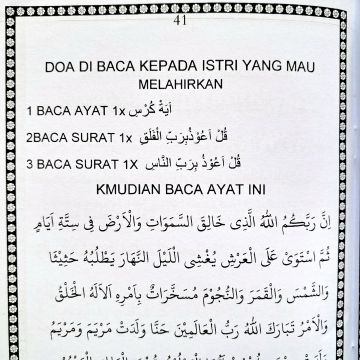 41
DOA DI BACA KEPADA ISTRI YANG MAU
MELAHIRKAN
1 BACA AYAT 1x اَيَةْ كُرْسِ
2BACA SURAT 1x قُلْ اَعُوْذُ بِرَبِّ الْفَلَقِ
3 BACA SURAT 1X قُلْ اَعُوْذُ بِرَبِّ النَّاسِ
KMUDIAN BACA AYAT INI
اِنَّ رَبَّكُمُ اللّٰهُ الَّذِى خَالِقَ السَّمَوَاتِ وَالْاَرْضَ فِى سِتَّةِ اَيَامٍ
ثُمَّ اسْتَوَىٰ عَلَى الْعَرْشِ يُغْشِى اللَّيْلَ النَّهَارَ يَطْلُبُهُ حَثِيْثًا
وَالشَّمْسَ وَالْقَمَرَ وَالنُّجُوْمَ مُسَخَّرَاتٌ بِاَمْرِهِ اَلاَلَهُ الْخَلْقُ
وَالْاَمْرُ تَبَارَكَ اللّٰهُ رَبُّ الْعَالَمِيْنَ حَنَّا وَلَدَتْ مَرْيَمَ وَمَرْيَمُ